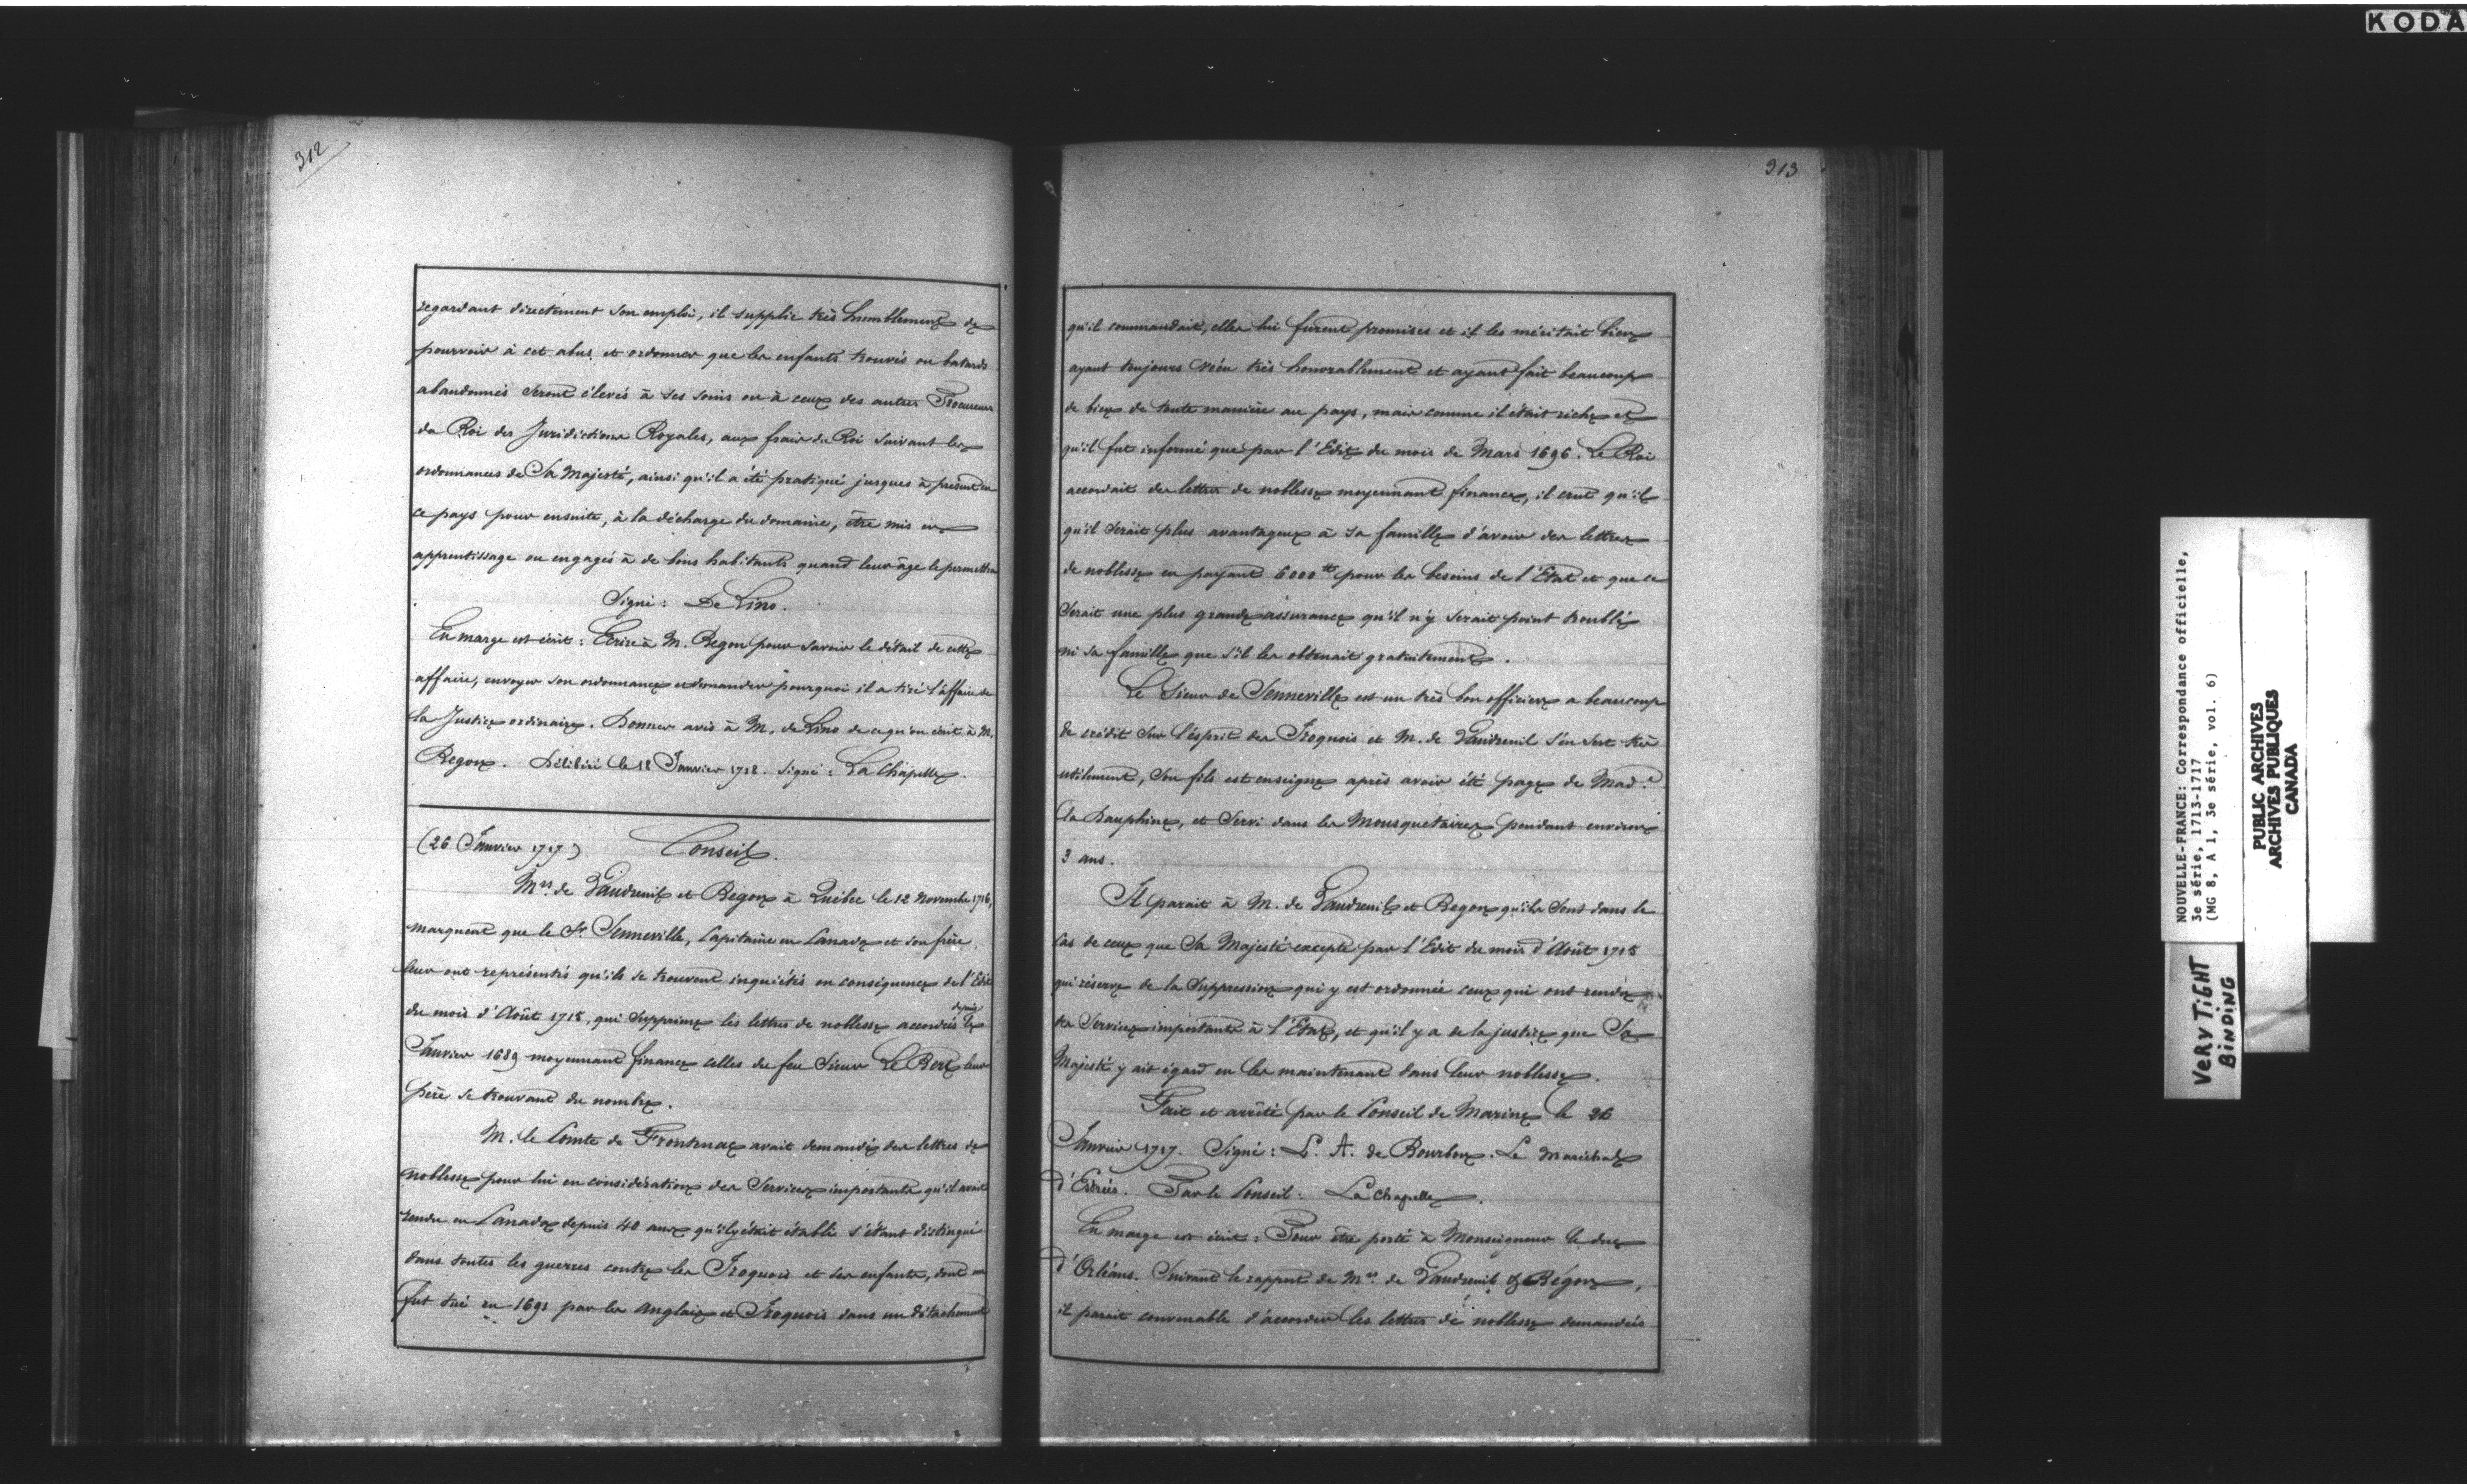 KODA
312
regardant directement son emploi, il supplie très humblement de
pourvoir à cet abus et ordonner que les enfants trouvés ou batards
abandonnés seront élevés à ses soins ou à ceux des autres Procureurs
du Roi des Juridictions Royales, aux frais du Roi suivant les
ordonnances de Sa Majesté, ainsi qu'il a été pratiqué jusques à présent en
ce pays pour ensuite, à la décharge du domaine, être mis en
apprentissage ou engagés à de bons habitants quand leur âge le permettra
Signé: De Lino.
En marge est écrit: Ecrire à M. Begon pour savoir le détail de cette
affaire, envoyer son ordonnance et demander pourquoi il a tiré l'affaire de
la Justice ordinaire. Donner avis à M. de Lino de ce qu'on écrit à M.
Begon. Délibéré le 18 Janvier 1718. signé: La Chapelle.
(26 Janvier 1717) Conseil.
Mrs. de Vaudreuil et Begon à Québec le 12 Novembre 1716,
marquent que le Sr. Senneville, Capitaine en Canada et son frère,
leur ont représentés qu'ils se trouvent inquiétés en conséquence de l'Edit
du mois d'Août 1715, qui supprime les lettres de noblesse accordées depuis le
Janvier 1689 moyennant finance celles du feu Sieur Le Ber leur
père se trouvant du nombre.
M. le Comte de Frontenac avait demandé des lettres de
noblesse pour lui en considération des Services importants qu'il avait
rendu en Canada depuis 40 ans qu'il y était établi s'étant distingué
dans toutes les guerres contre les Iroquois et ses enfants, dont un
fut tué en 1691 par les Anglais et Iroquois dans un détachement
313
qu'il commandait, elles lui furent promises et il les méritait bien
ayant toujours vécu très honorablement et ayant fait beaucoup
de bien de toute manière au pays, mais comme il était riche et
qu'il fut informé que par l'Edit du mois de Mars 1696. Le Roi
accordait des lettres de noblesse moyennant finance, il crut qu'il
qu'il serait plus avantageux à sa famille d'avoir des lettres
de noblesse en payant 6000 tt pour les besoins de l'Etat et que ce
serait une plus grande assurance qu'il n'y serait point troublé
ni sa famille que s'il les obtenait gratuitement.
Le Sieur de Senneville est un très bon officier a beaucoup
de crédit sur l'esprit des Iroquois et M. de Vaudreuil s'en sert très
utilement, son fils est enseigne après avoir été page de Made.
la Dauphine, et servi dans les Mousquetaires pendant environ
3 ans.
Il parait à M. de Vaudreuil et Begon qu'ils sont dans le
cas de ceux que Sa Majesté excepte par l'Edit du mois d'Août 1715
qui réserve de la suppression qui y est ordonnée ceux qui ont rendu
des Services importants à l'Etat, et qu'il y a de la justice que Sa
Majesté y ait égard en les maintenant dans leur noblesse.
Fait et arrêté par le Conseil de Marine le 26
Janvier 1717. Signé: L. A. de Bourbon. Le Maréchal
d'Estrées. Par le Conseil: La Chapelle.
En marge est écrit: Pour être porté à Monseigneur le duc
d'Orléans. Suivant le rapport de Mrs. de Vaudreuil & Bégon,
il parait convenable d'accorder les lettres de noblesse demandées
NOUVELLE-FRANCE: Correspondance officielle,
3e série, 1713-1717
(MG 8, A 1, 3e série, vol. 6)
PUBLIC ARCHIVES
ARCHIVES PUBLIQUES
CANADA
VERY TIGHT
BINDING